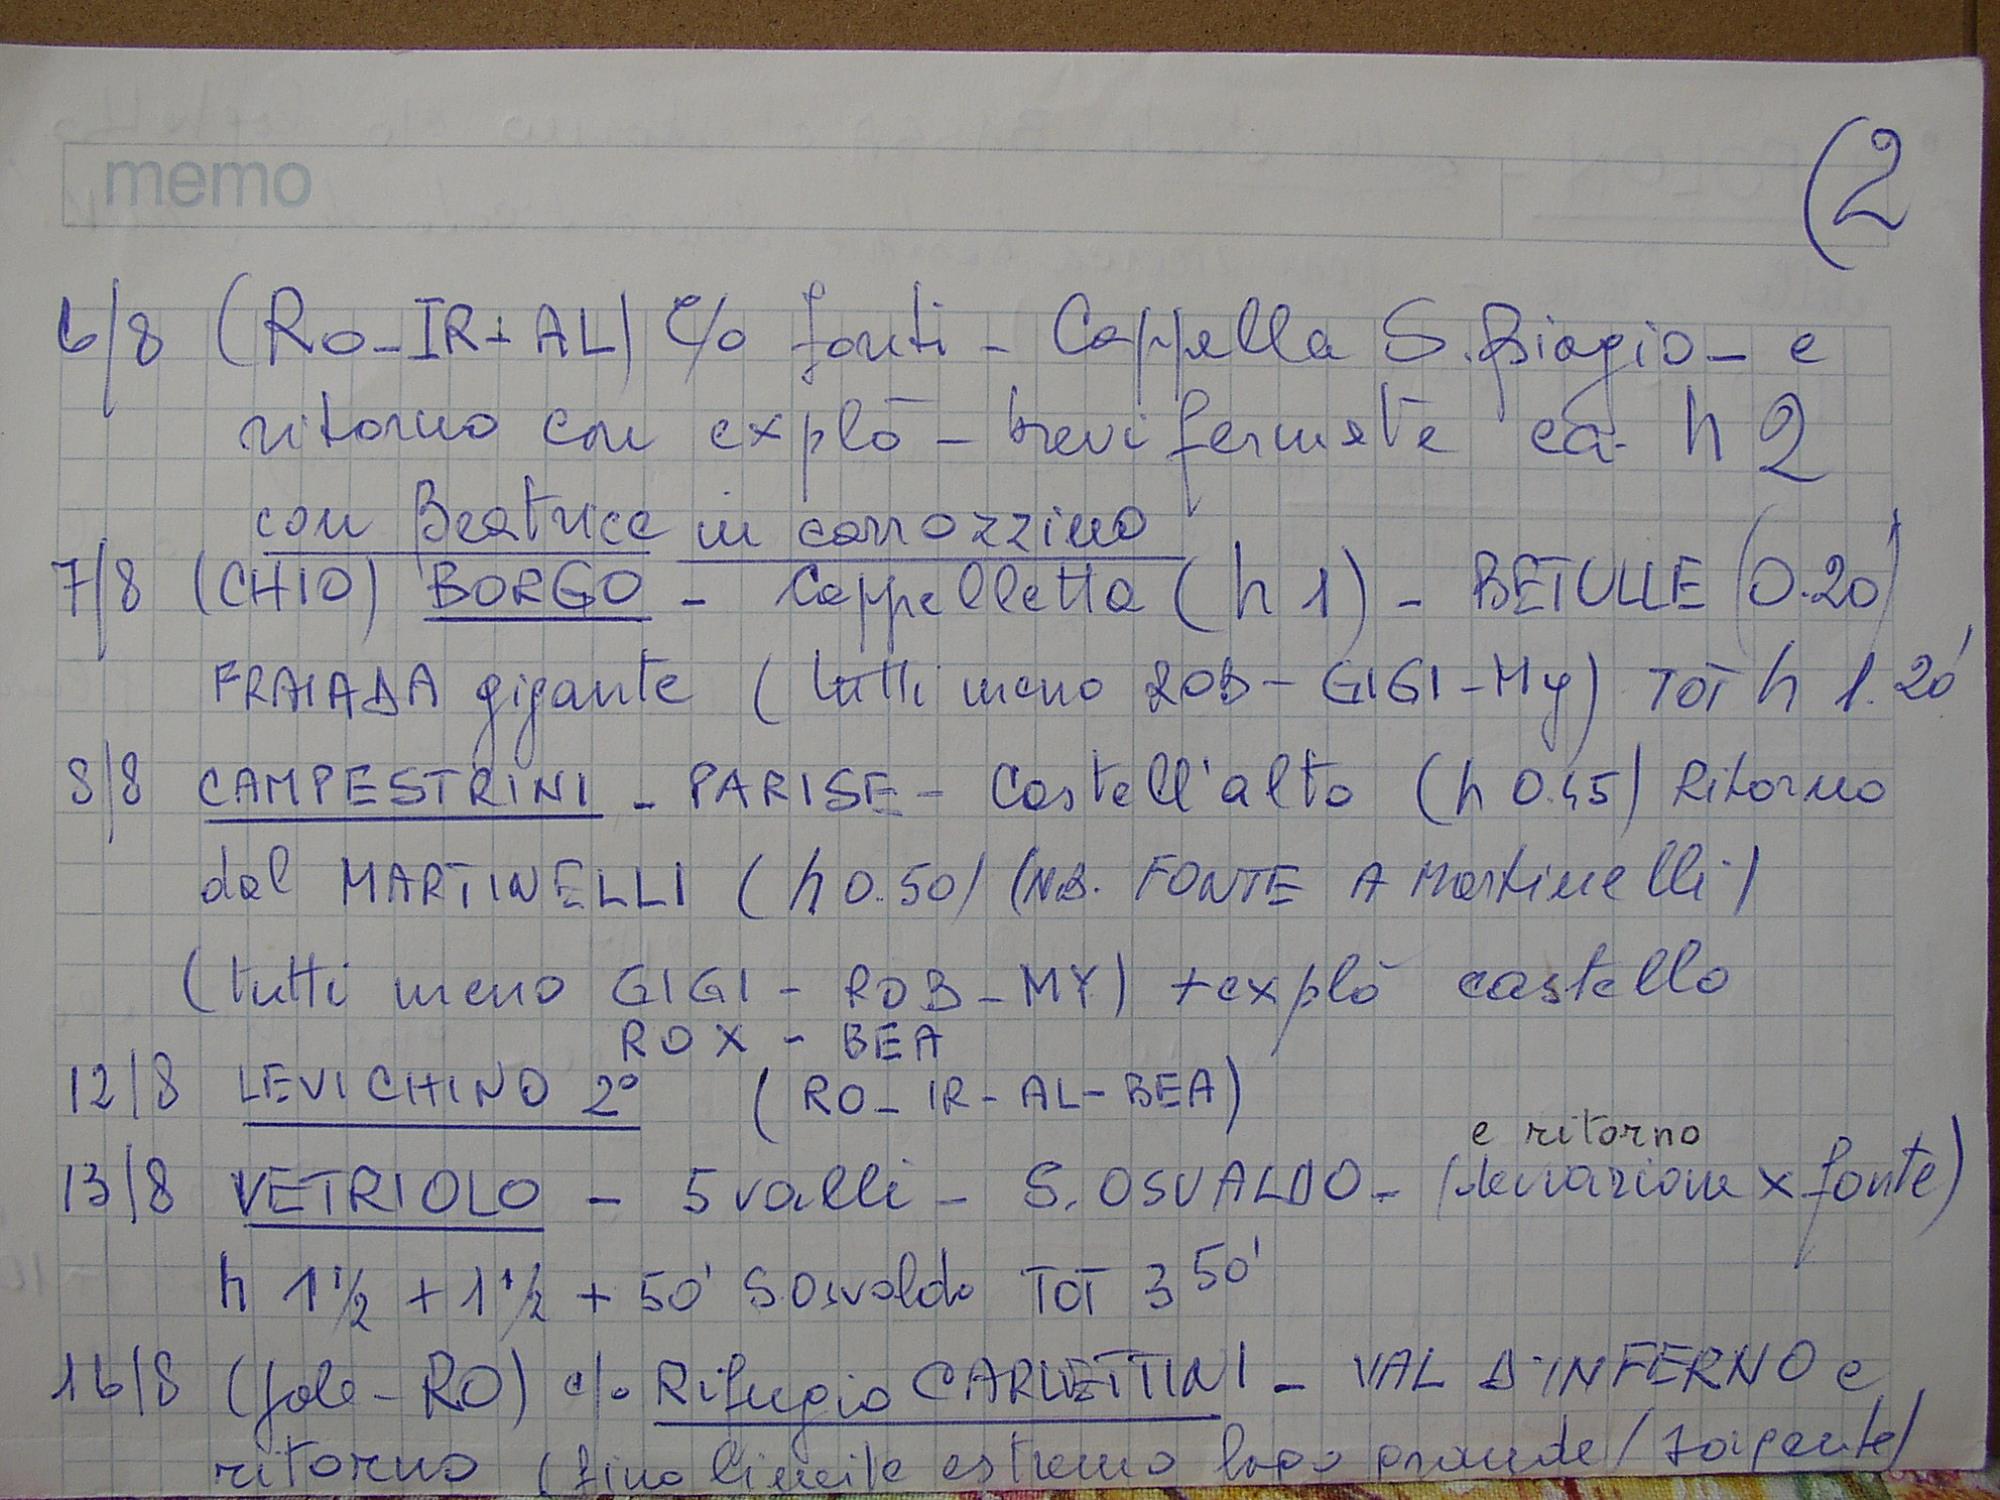 memo
(2
6/8 (RO-IR+AL) c/o fonti - Cappella S. Biagio - e
ritorno con explò - brevi fermate ca. h 2
con Beatrice in carrozzino
7/8 (CHIO) BORGO - Cappelletta (h 1) - BETULLE (0.20'
FRAIADA gigante (tutti meno ROB - GIGI - My) TOT h 1.20'
8/8 CAMPESTRINI - PARISE - Castell'alto (h 0.45) Ritorno
dal MARTINELLI (h 0.50) (NB. FONTE A Martinelli)
(tutti meno GIGI - ROB - MY) + explò castello
ROX - BEA
12/8 LEVICHINO 2° (RO - IR - AL - BEA)
e ritorno
13/8 VETRIOLO - 5 valli - S. OSVALDO - (deviazione x fonte)
h 1 1/2 + 1 1/2 + 50' S Osvaldo TOT 3 50'
16/8 (sole - RO) c/o Rifugio CARLETTINI - VAL D'INFERNO e
ritorno (fino limite estremo lago grande / sorgente)